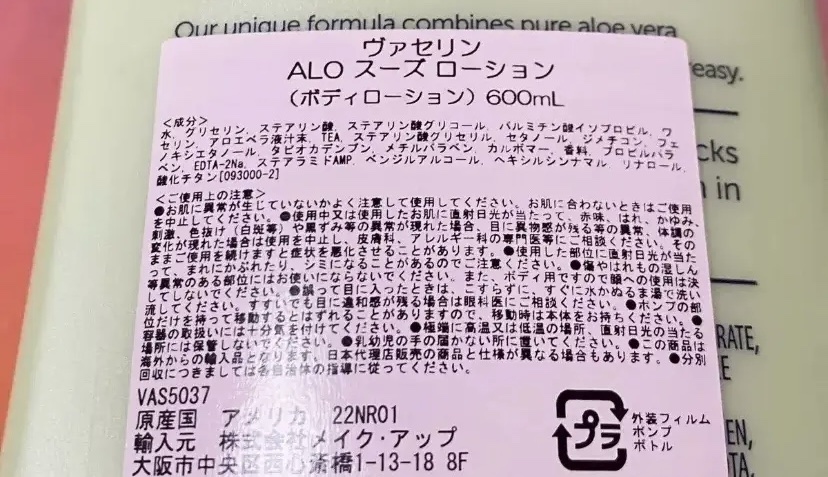 Our unique formula combines pure aloe vera
easy.
cks
n in
RATE,
E
EN,
TA,
ヴァセリン
ALO スーズ ローション
（ボディローション）600mL
＜成分＞
水、グリセリン、ステアリン酸、ステアリン酸グリコール、パルミチン酸イソプロピル、ワ
セリン、アロエベラ液汁末、TEA、ステアリン酸グリセリル、セタノール、ジメチコン、フェ
ノキシエタノール、タピオカデンプン、メチルパラベン、カルボマー、香料、プロピルパラ
ベン、EDTA-2Na、ステアラミドAMP、ベンジルアルコール、ヘキシルシンナマル、リナロール、
酸化チタン[093000-2]
＜ご使用上の注意＞
●お肌に異常が生じていないかよく注意して使用してください。お肌に合わないときはご使用
を中止してください。●使用中又は使用したお肌に直射日光が当たって、赤味、はれ、かゆみ、
刺激、色抜け（白斑等）や黒ずみ等の異常が現れた場合、目に異物感が残る等の異常、体調の
変化が現れた場合は使用を中止し、皮膚科、アレルギー科の専門医等にご相談ください。その
ままご使用を続けますと症状を悪化させることがあります。●使用した部位に直射日光が当た
って、まれにかぶれたり、シミになることがあるのでご注意ください。●傷やはれもの湿しん
等異常のある部位にはお使いにならないでください。また、ボディ用ですので顔への使用は決
してしないでください。●誤って目に入ったときは、こすらずに、すぐに水かぬるま湯で洗い
流してください。すすいでも目に違和感が残る場合は眼科医にご相談ください。●ポンプの部
位だけを持って移動するとはずれることがありますので、移動時は本体をお持ちください。●
容器の取扱いには十分気を付けてください。●極端に高温又は低温の場所、直射日光の当たる
場所には保管しないでください。●乳幼児の手の届かない所に置いてください。●この商品は
海外からの輸入品となります、日本代理店販売の商品と仕様が異なる場合もあります。●分別
回収につきましては各自治体の指導に従ってください。
VAS5037
原産国 アメリカ 22NR01
輸入元 株式会社メイク・アップ
大阪市中央区西心斎橋1-13-18 8F
プラ
外装フィルム
ポンプ
ボトル